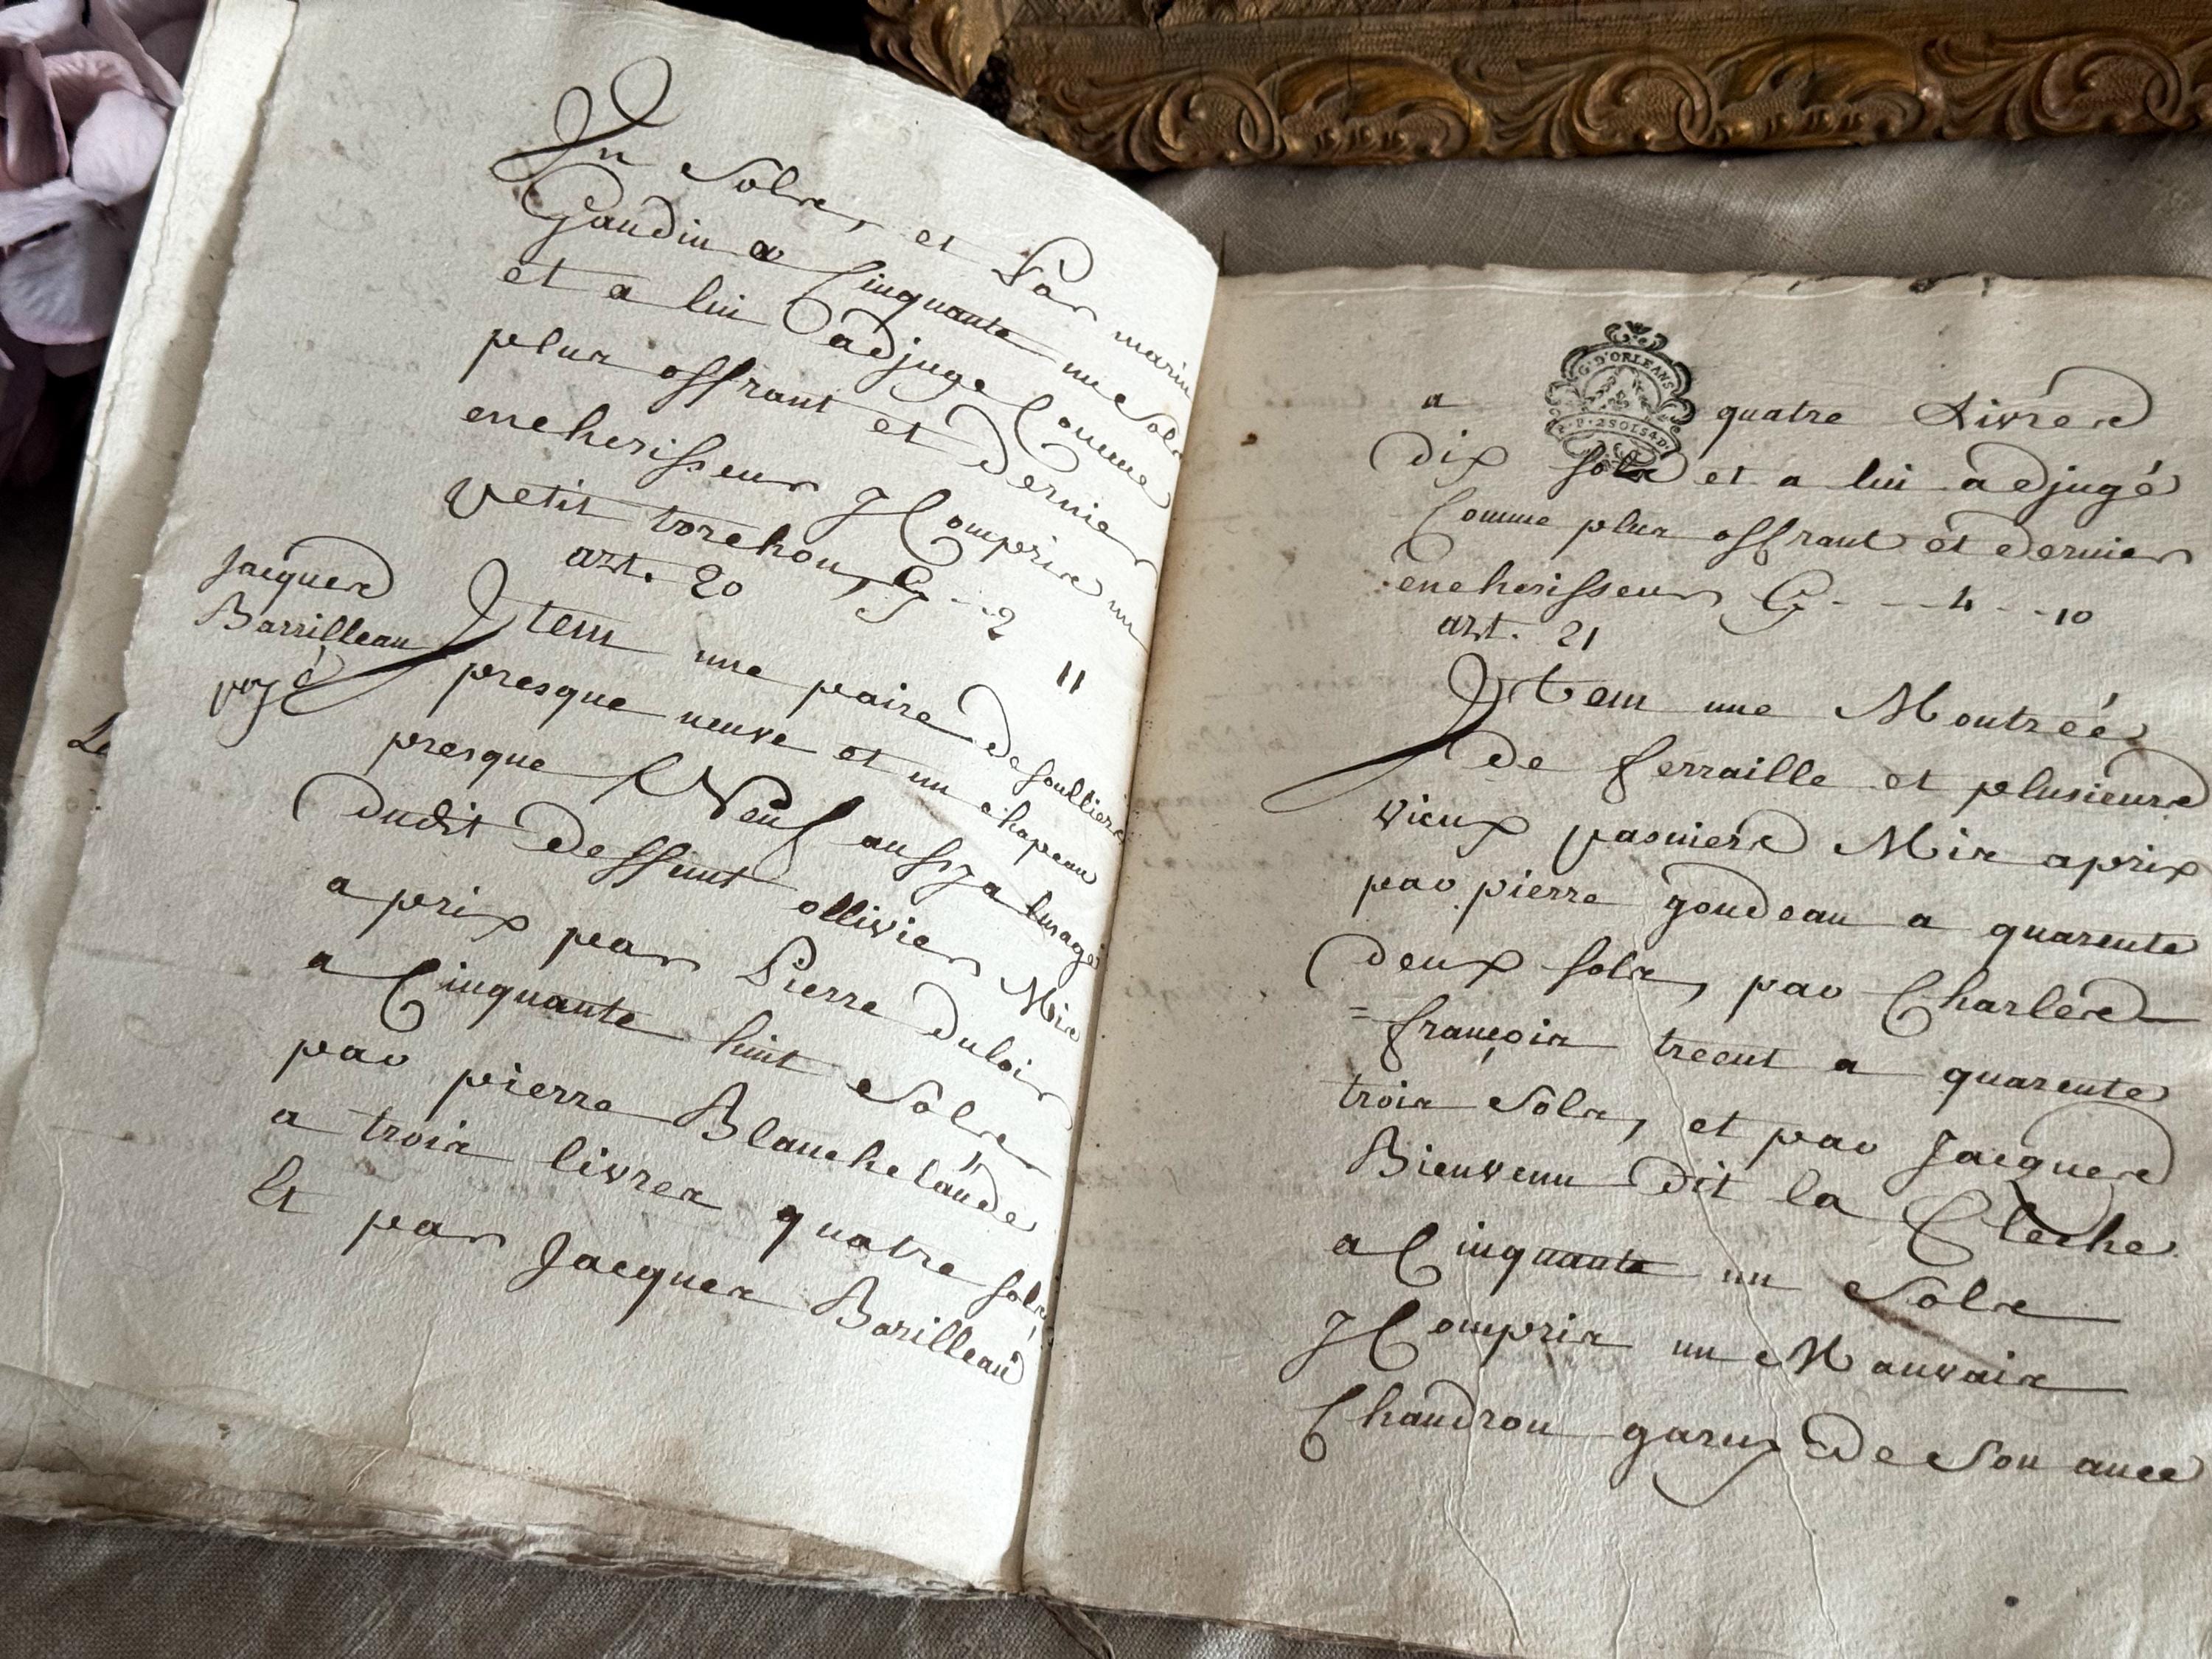 Un Sols, et Par marin
Gaudin a Cinquante un Sols
et a lui adjugé Comme
plus offrant et dernier
encherisseur y Compris un
petit torchon, Cy -- 2 11
art. 20
Jacques
Barrilleau
payé
Item une paire de soulliers
presque neuve et un chapeau
presque Neuf aussy a lusage
dudit deffunt ollivier Mis
a prix par Pierre dulois
a Cinquante huit Sols
par pierre Blanchelande
a trois livres quatre sols,
Et par Jacques Barilleau
G. D'ORLEANS
2 SOLS 4 D.
a quatre Livres
dix sols et a lui adjugé
Comme plus offrant et dernier
encherisseur Cy -- 4 -- 10
art. 21
Item une Montrée
de ferraille et plusieurs
vieux pasniers Mis a prix
par pierre goudeau a quarente
deux sols, par Charles
= françois trecut a quarente
trois Sols, et par Jacques
Bienvenu dit la Cleche
a Cinquante un Sols
y Compris un Mauvais
Chaudron garny de Son ance